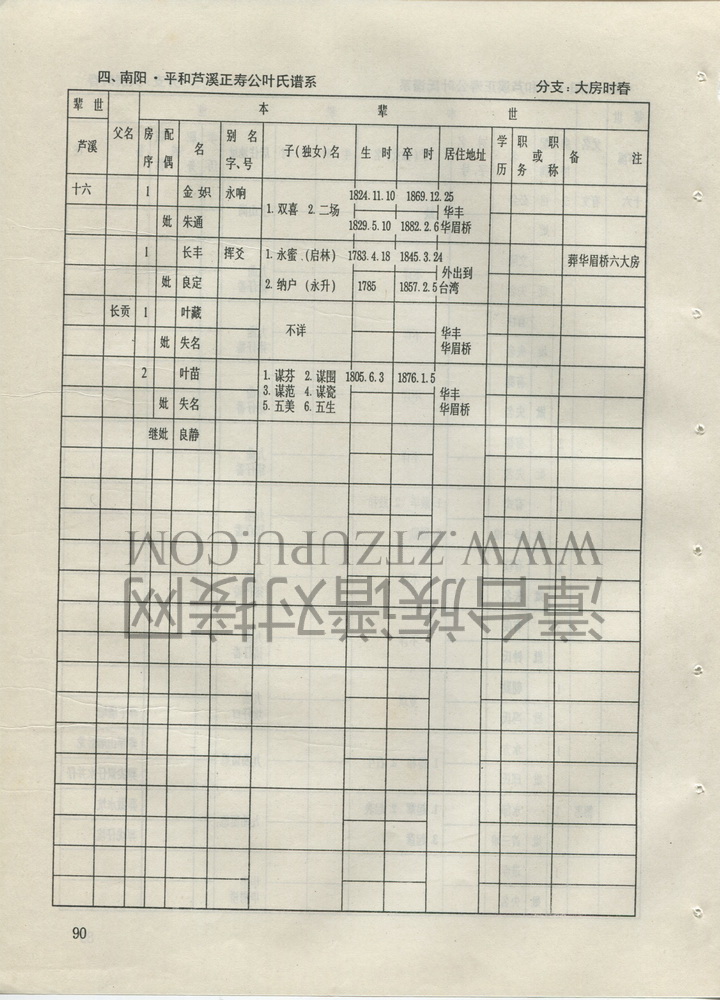 四、南阳·平和芦溪正寿公叶氏谱系 分支：大房时春
辈世 本辈世
芦溪 父名 房序 配偶 名 别名字、号 子(独女)名 生时 卒时 居住地址 学历 职务或职称 备注
十六 1 金妀 永响 1.双喜 2.二场 1824.11.10 1869.12.25 华丰华眉桥
妣 朱通 1829.5.10 1882.2.6
1 长丰 挥爻 1.永蜜.(启林) 1783.4.18 1845.3.24 外出到台湾 葬华眉桥六大房
妣 良定 2.纳户(永升) 1785 1857.2.5
长贡 1 叶藏 不详 华丰华眉桥
妣 失名
2 叶苗 1.谋芬 2.谋围 1805.6.3 1876.1.5 华丰华眉桥
3.谋范 4.谋瓷
妣 失名 5.五美 6.五生
继妣 良静
WWW.ZTZUPU.COM
漳台族谱对接网
90